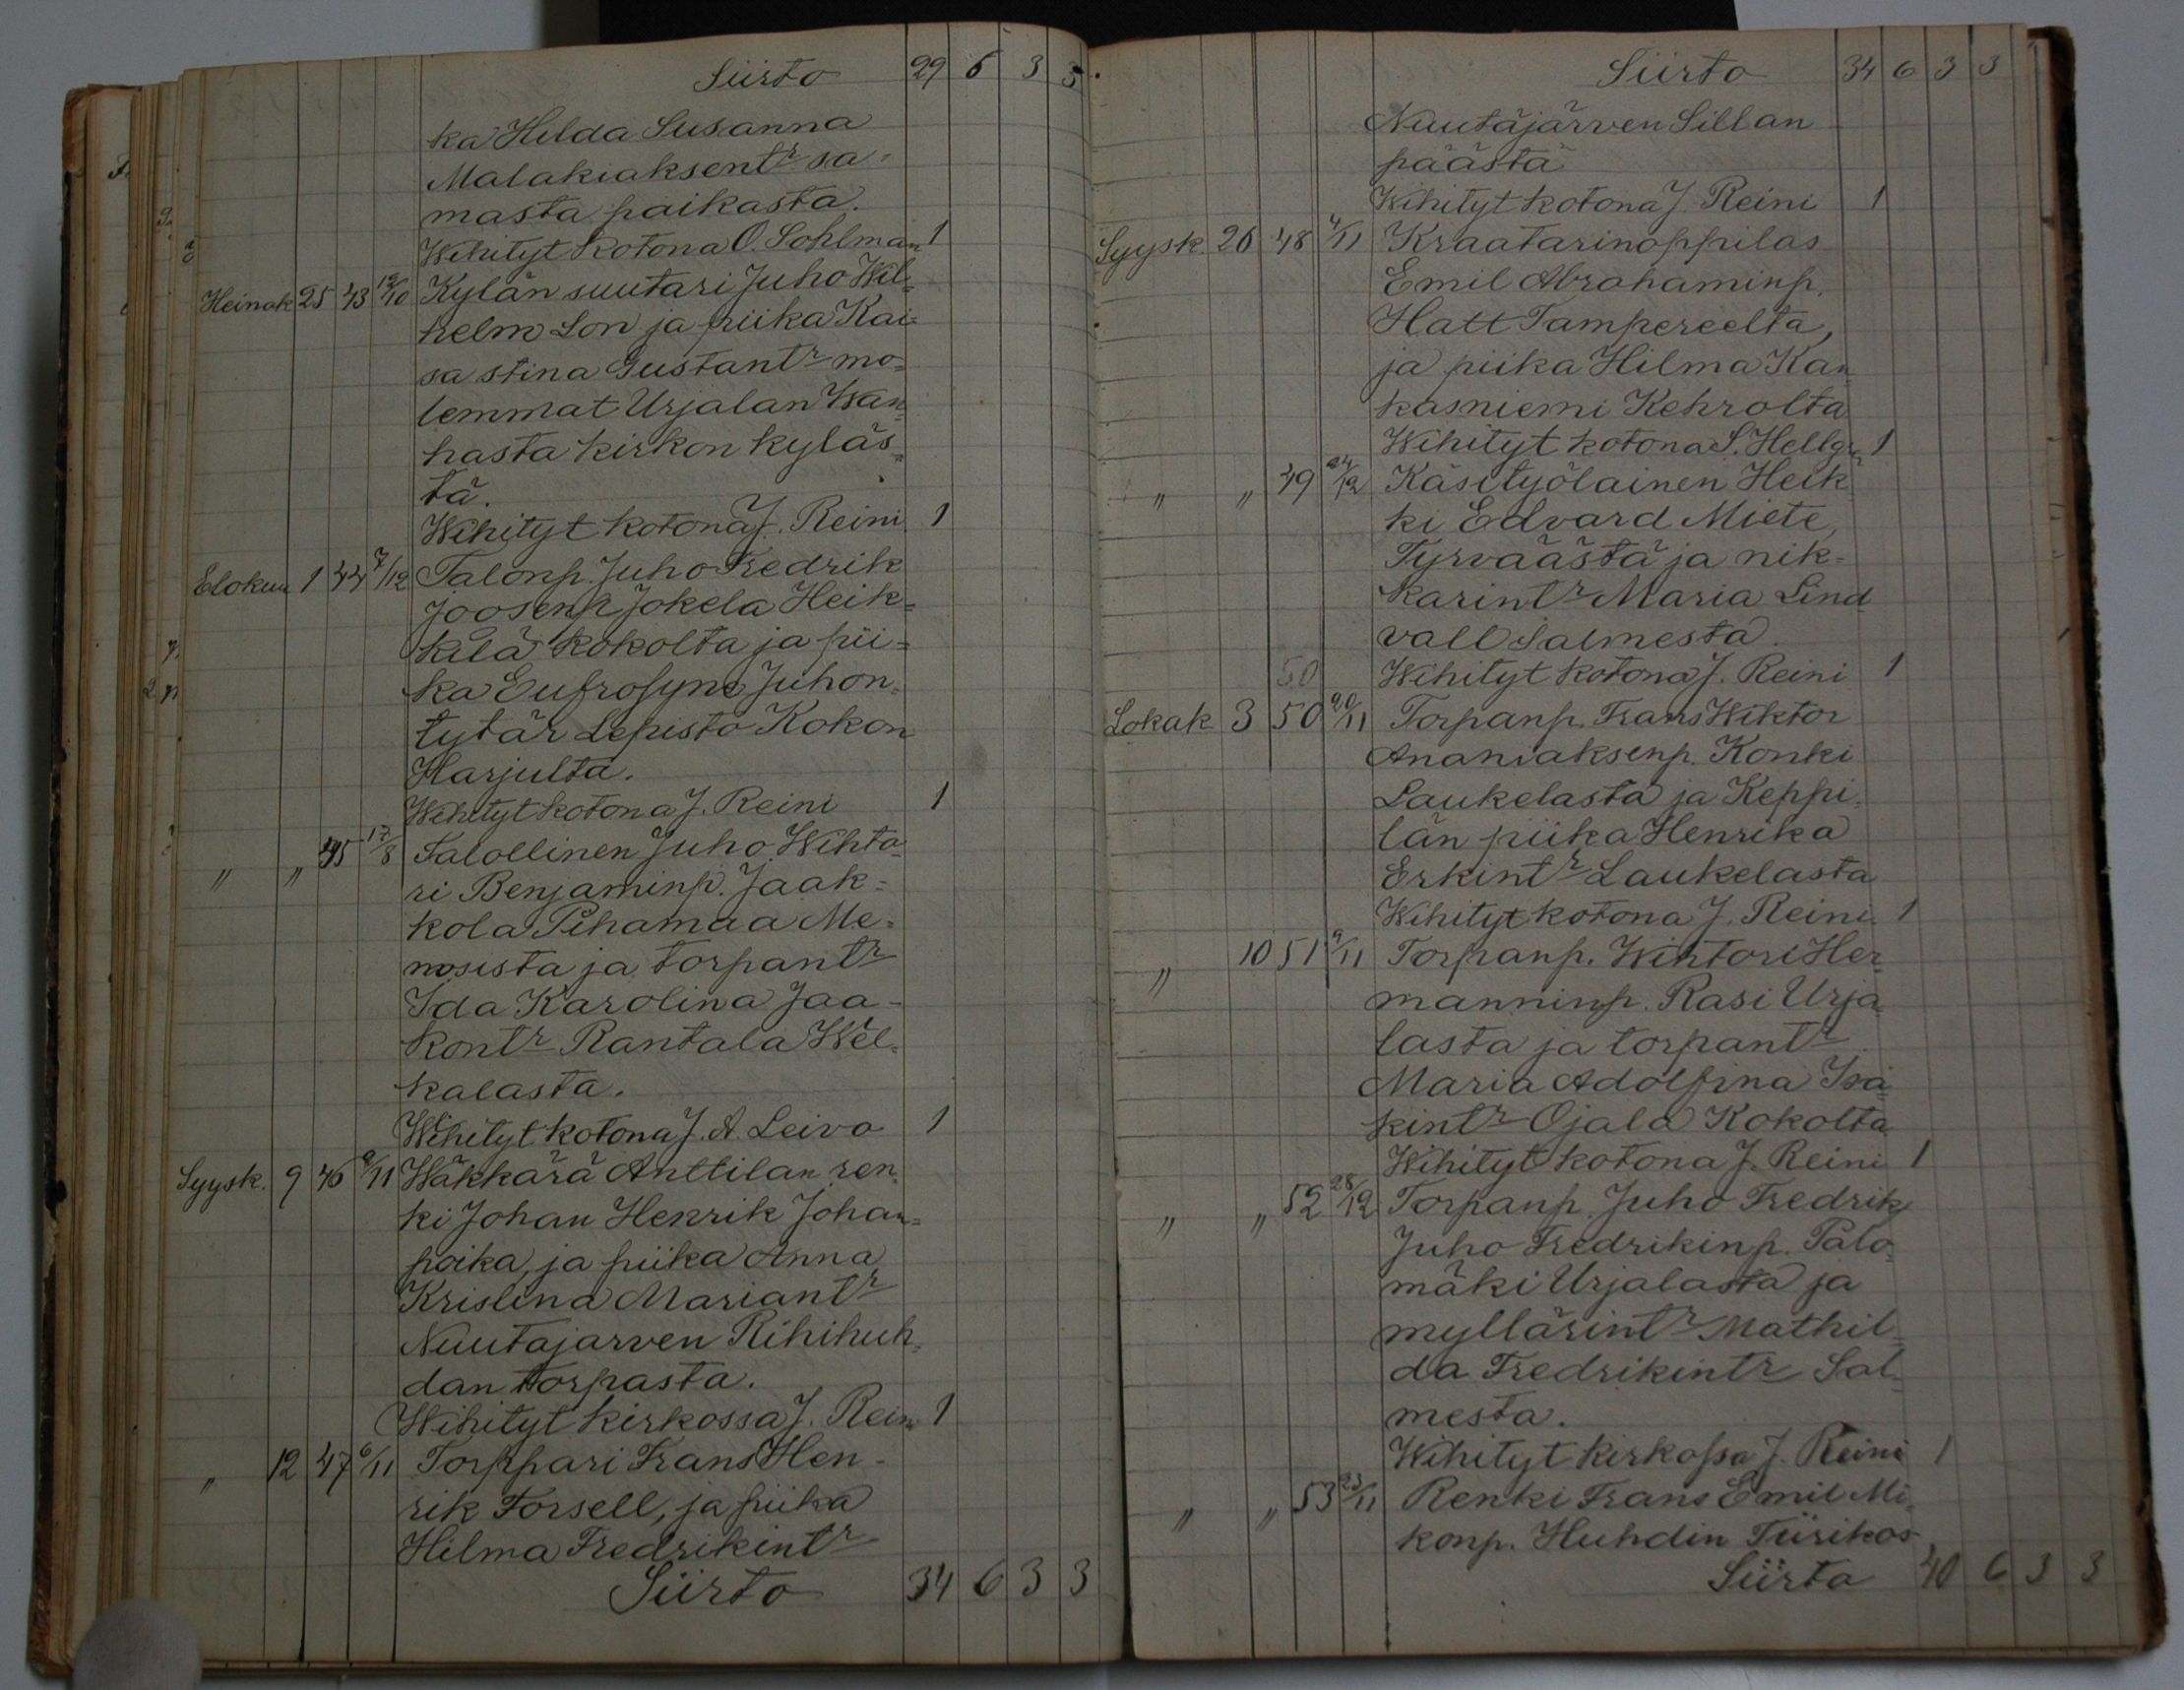 Siirto 29 6 3 3
ka Hilda Susanna
Malakiaksentr sa-
masta paikasta.
Wihityt kotona O. Sohlman 1
Heinäk 25 43 12/10 Kylän suutari Juho Wil-
helm Lon ja piika Kai-
sa Stina Gustantr mo-
lemmat Urjalan Wan-
hasta kirkon kyläs-
tä.
Wihityt kotona J. Reini 1
Elokuu 1 44 7/12 Talonp. Juho Fredrik
Joosenp. Jokela Heik-
kilä Kokolta ja pii-
ka Eufrosyne Juhon-
tytär Lepistö Kokon
Harjulta.
Wihityt kotona J. Reini 1
" " 45 17/8 Talollinen Juho Wihto-
ri Benjaminp. Jaak-
kola Pihamaa Me-
nosista ja torpantr
Ida Karolina Jaa-
kontr Rantala Wel-
kalasta.
Wihityt kotona J. A. Leivo 1
Syysk. 9 46 9/11 Wäkkärä Anttilan ren-
ki Johan Henrik Johan-
poika, ja piika Anna
Kristina Mariantr
Nuutajärven Riihihuh-
dan torpasta.
Wihityt kirkossa J. Rein 1
" 12 47 6/11 Torppari Frans Hen-
rik Forsell, ja piika
Hilma Fredrikintr
Siirto 34 6 3 3
Siirto 34 6 3 3
Nuutäjärven Sillan
päästä
Wihityt kotona J. Reini 1
Syysk. 26 48 4/11 Kraatarinoppilas
Emil Abrahaminp.
Hatt Tampereelta,
ja piika Hilma Kan-
kasniemi Kehrolta
Wihityt kotona S. Hellgr 1
" " 49 24/12 Käsityöläinen Heik
ki Edvard Miete,
Tyrväästä ja nik-
karintr Maria Lind
vall Salmesta.
50 Wihityt kotona J. Reini 1
Lokak 3 50 20/11 Torpanp. Frans Wiktor
Ananiaksenp. Konki
Laukelasta ja Keppi-
län piika Henrika
Erkintr Laukelasta
Wihityt kotona J. Reini 1
" 10 51 9/11 Torpanp. Wihtori Her-
manninp. Rasi Urja-
lasta ja torpantr
Maria Adolfina Isa-
kintr Ojala Kokolta
Wihityt kotona J. Reini 1
" " 52 28/12 Torpanp. Juho Fredrik
Juho Fredrikinp. Palo-
mäki Urjalasta ja
myllärintr Mathil-
da Fredrikintr Sal-
mesta.
Wihityt kirkossa J. Reini 1
" " 53 23/11 Renki Frans Emil Mi-
konp. Huhdin Tiirikos-
Siirto 40 6 3 3